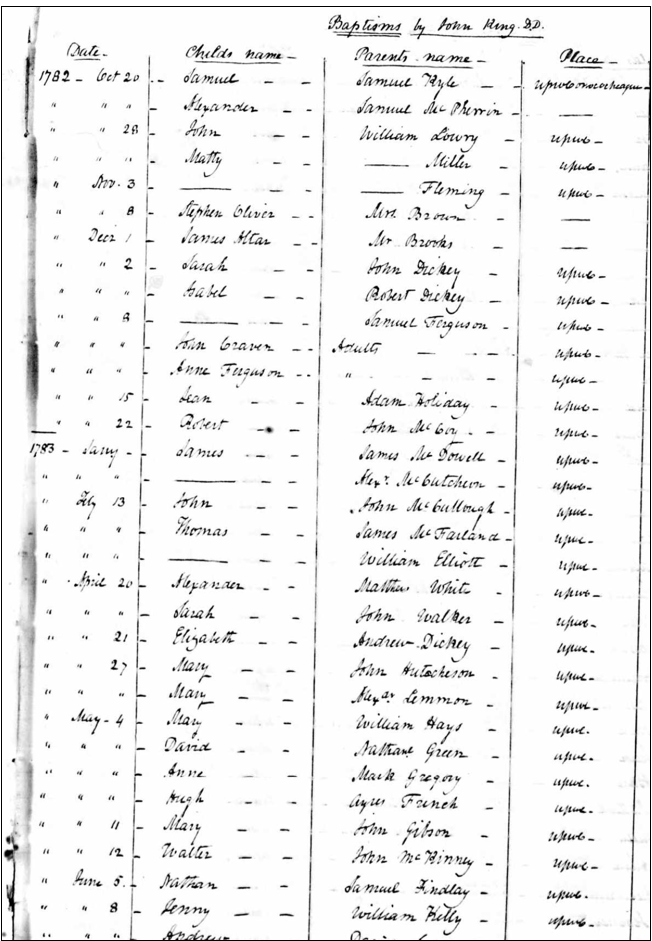 Baptisms by John King. D.D.
Date- Childs name- Parents name- Place-
1782 - Oct 20 - Samuel - - Samuel Kyle - - upwconococheague-
" " " - Alexander - - Samuel McPherrin - —
" " 28 - John - - William Lowry - upwc-
" " " - Matty - - — Miller - upwc-
" Nov. 3 - — - — Fleming - upwc-
" " 8 - Stephen Oliver - - Mrs. Brown - —
" Decr 1 - James Altar - - Mr Brooks - —
" " 2 - Sarah - - John Dickey - upwc-
" " " - Isabel - - Robert Dickey - upwc-
" " 8 - — - - Samuel Ferguson - upwc-
" " " - John Craven - - Adults - - - upwc-
" " " - Anne Ferguson - - " - - upwc-
" " 15 - Jean - - Adam Holiday - upwc-
" " 22 - Robert - John McCoy - - upwc-
1783 - Jany - - James - - James McDowell - upwc-
" " " - — - - Alexr. McCutcheon - upwc-
" Feby 13 - John - - John McCullough - upwc-
" " " - Thomas - - James McFarland - upwc-
" " " - — - - William Elliott - upwc-
" April 20 - Alexander - - Matthew White - upwc-
" " " - Sarah - - John Walker - upwc-
" " 21 - Elizabeth - - Andrew Dickey - upwc-
" " 27 - Mary - - John Hutcheson - upwc-
" " " - Mary - - Alexar Lemmon - upwc-
" May - 4 - Mary - - William Hays - upwc.
" " " - David - - Nathanl Green - upwc-
" " " - Anne - - Mark Gregory - upwc.
" " " - Hugh - - Ayres French - upwc.
" " 11 - Mary - - John Gibson - upwc-
" " 12 - Walter - - John McKinney - upwc-
" June 5. - Nathan - - Samuel Findlay - upwc.
" " 8 - Jenny - - William Kelly - upwc-
" " " - Andrew